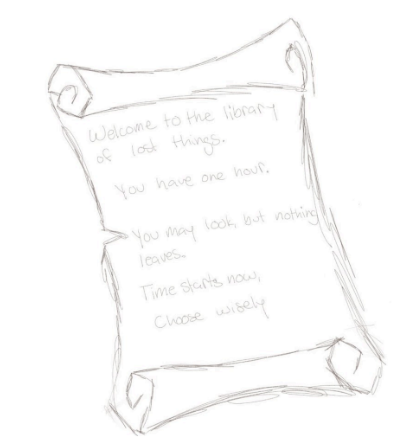 Welcome to the library
of lost things.
You have one hour.
You may look, but nothing
leaves.
Time starts now,
Choose wisely